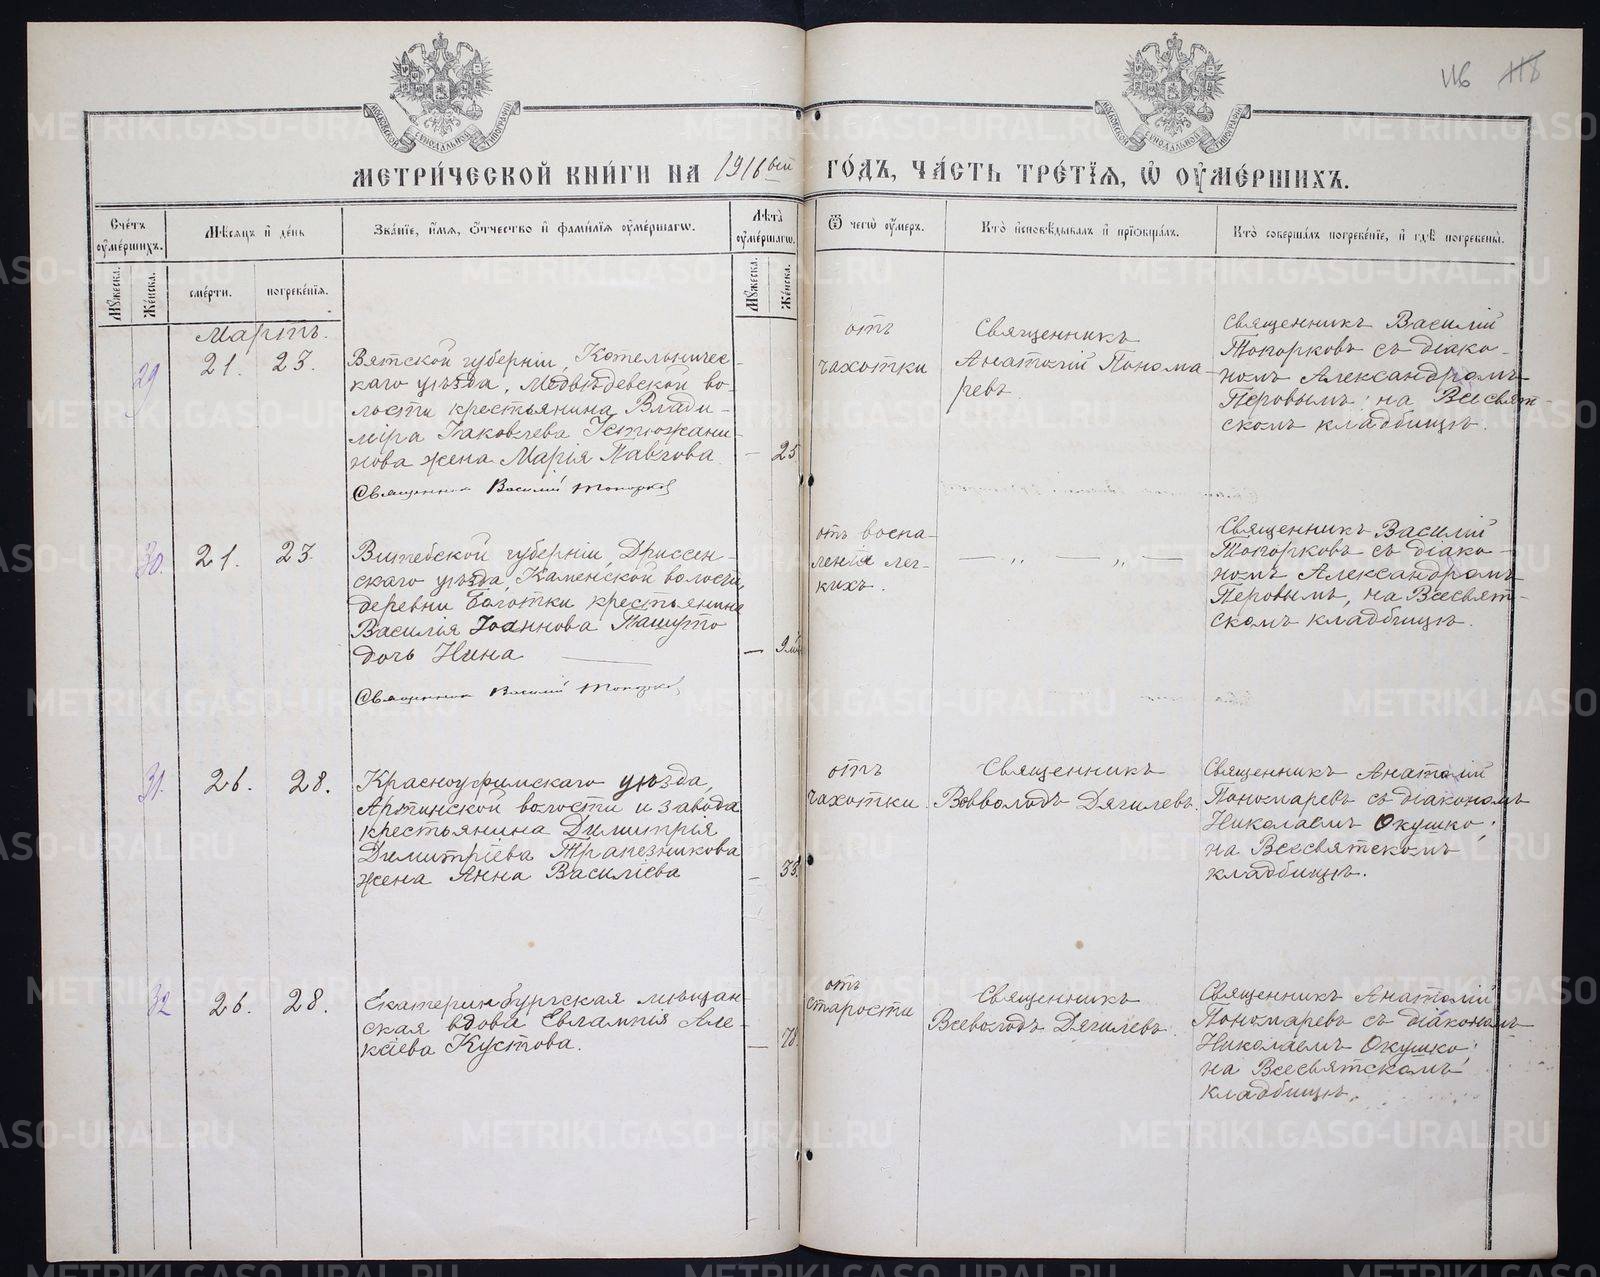 116 118
МЕТРИ́ЧЕСКОЙ КНИ́ГИ НА 1916ый ГО́ДЪ, ЧА́СТЬ ТРЕ́ТІѦ, Ѿ ОУМЕ́РШИХЪ.
Сче́тъ оумершихъ.
Мѣсяцъ и де́нь
Зва́ніе, и́мя, о́тчество и фами́лія оуме́ршагѡ.
Лѣта̀ оуме́ршагѡ.
Ѿ чегѡ̀ оу́меръ.
Кто̀ исповѣ́дывалъ и пріѡбща́лъ.
Кто̀ соверша́лъ погребе́ніе, и гдѣ̀ погребены̀.
Мꙋжеска.
Же́нска.
сме́рти.
погребе́нія.
Мꙋжеска.
Же́нска.
Мартъ.
29 21. 23.
Вятской губерніи, Котельничес-
каго уѣзда, Медвѣдевской во-
лости крестьянина Влади-
міра Іаковлева Устюжани-
нова жена Марія Павлова
— 25.
Священник Василій Топорков
отъ
чахотки
Священникъ
Анатолій Понома-
ревъ.
Священникъ Василій
Топорковъ съ діако-
номъ Александромъ
Перовымъ; на Всесвят-
скомъ кладбищѣ.
30. 21. 23.
Витебской губерніи, Дриссен-
скаго уѣзда, Каменской волости,
деревни Болотки крестьянина
Василія Іоаннова Пашуто
дочь Нина
— 9 м.
Священник Василій Топорков
отъ воспа-
ленія лег-
кихъ.
— „ — „ —
Священникъ Василій
Топорковъ съ діако-
номъ Александромъ
Перовымъ, на Всесвят-
скомъ кладбищѣ.
31. 26. 28.
Красноуфимскаго уѣзда,
Артинской волости и завода
крестьянина Димитрія
Димитріева Трапезникова
жена Анна Василіева
— 33.
отъ
чахотки
Священникъ
Вовволодъ Дягилевъ.
Священникъ Анатолій
Пономаревъ съ діакономъ
Николаемъ Окушко;
на Всесвятскомъ
кладбищѣ.
32 26. 28.
Екатеринбургская мѣщан-
ская вдова Евлампія Але-
ксіева Кустова.
— 78.
отъ
старости
Священникъ
Всеволодъ Дягилевъ.
Священникъ Анатолій
Пономаревъ съ діакономъ
Николаемъ Окушко;
на Всесвятскомъ
кладбищѣ.
METRIKI.GASO-URAL.RU